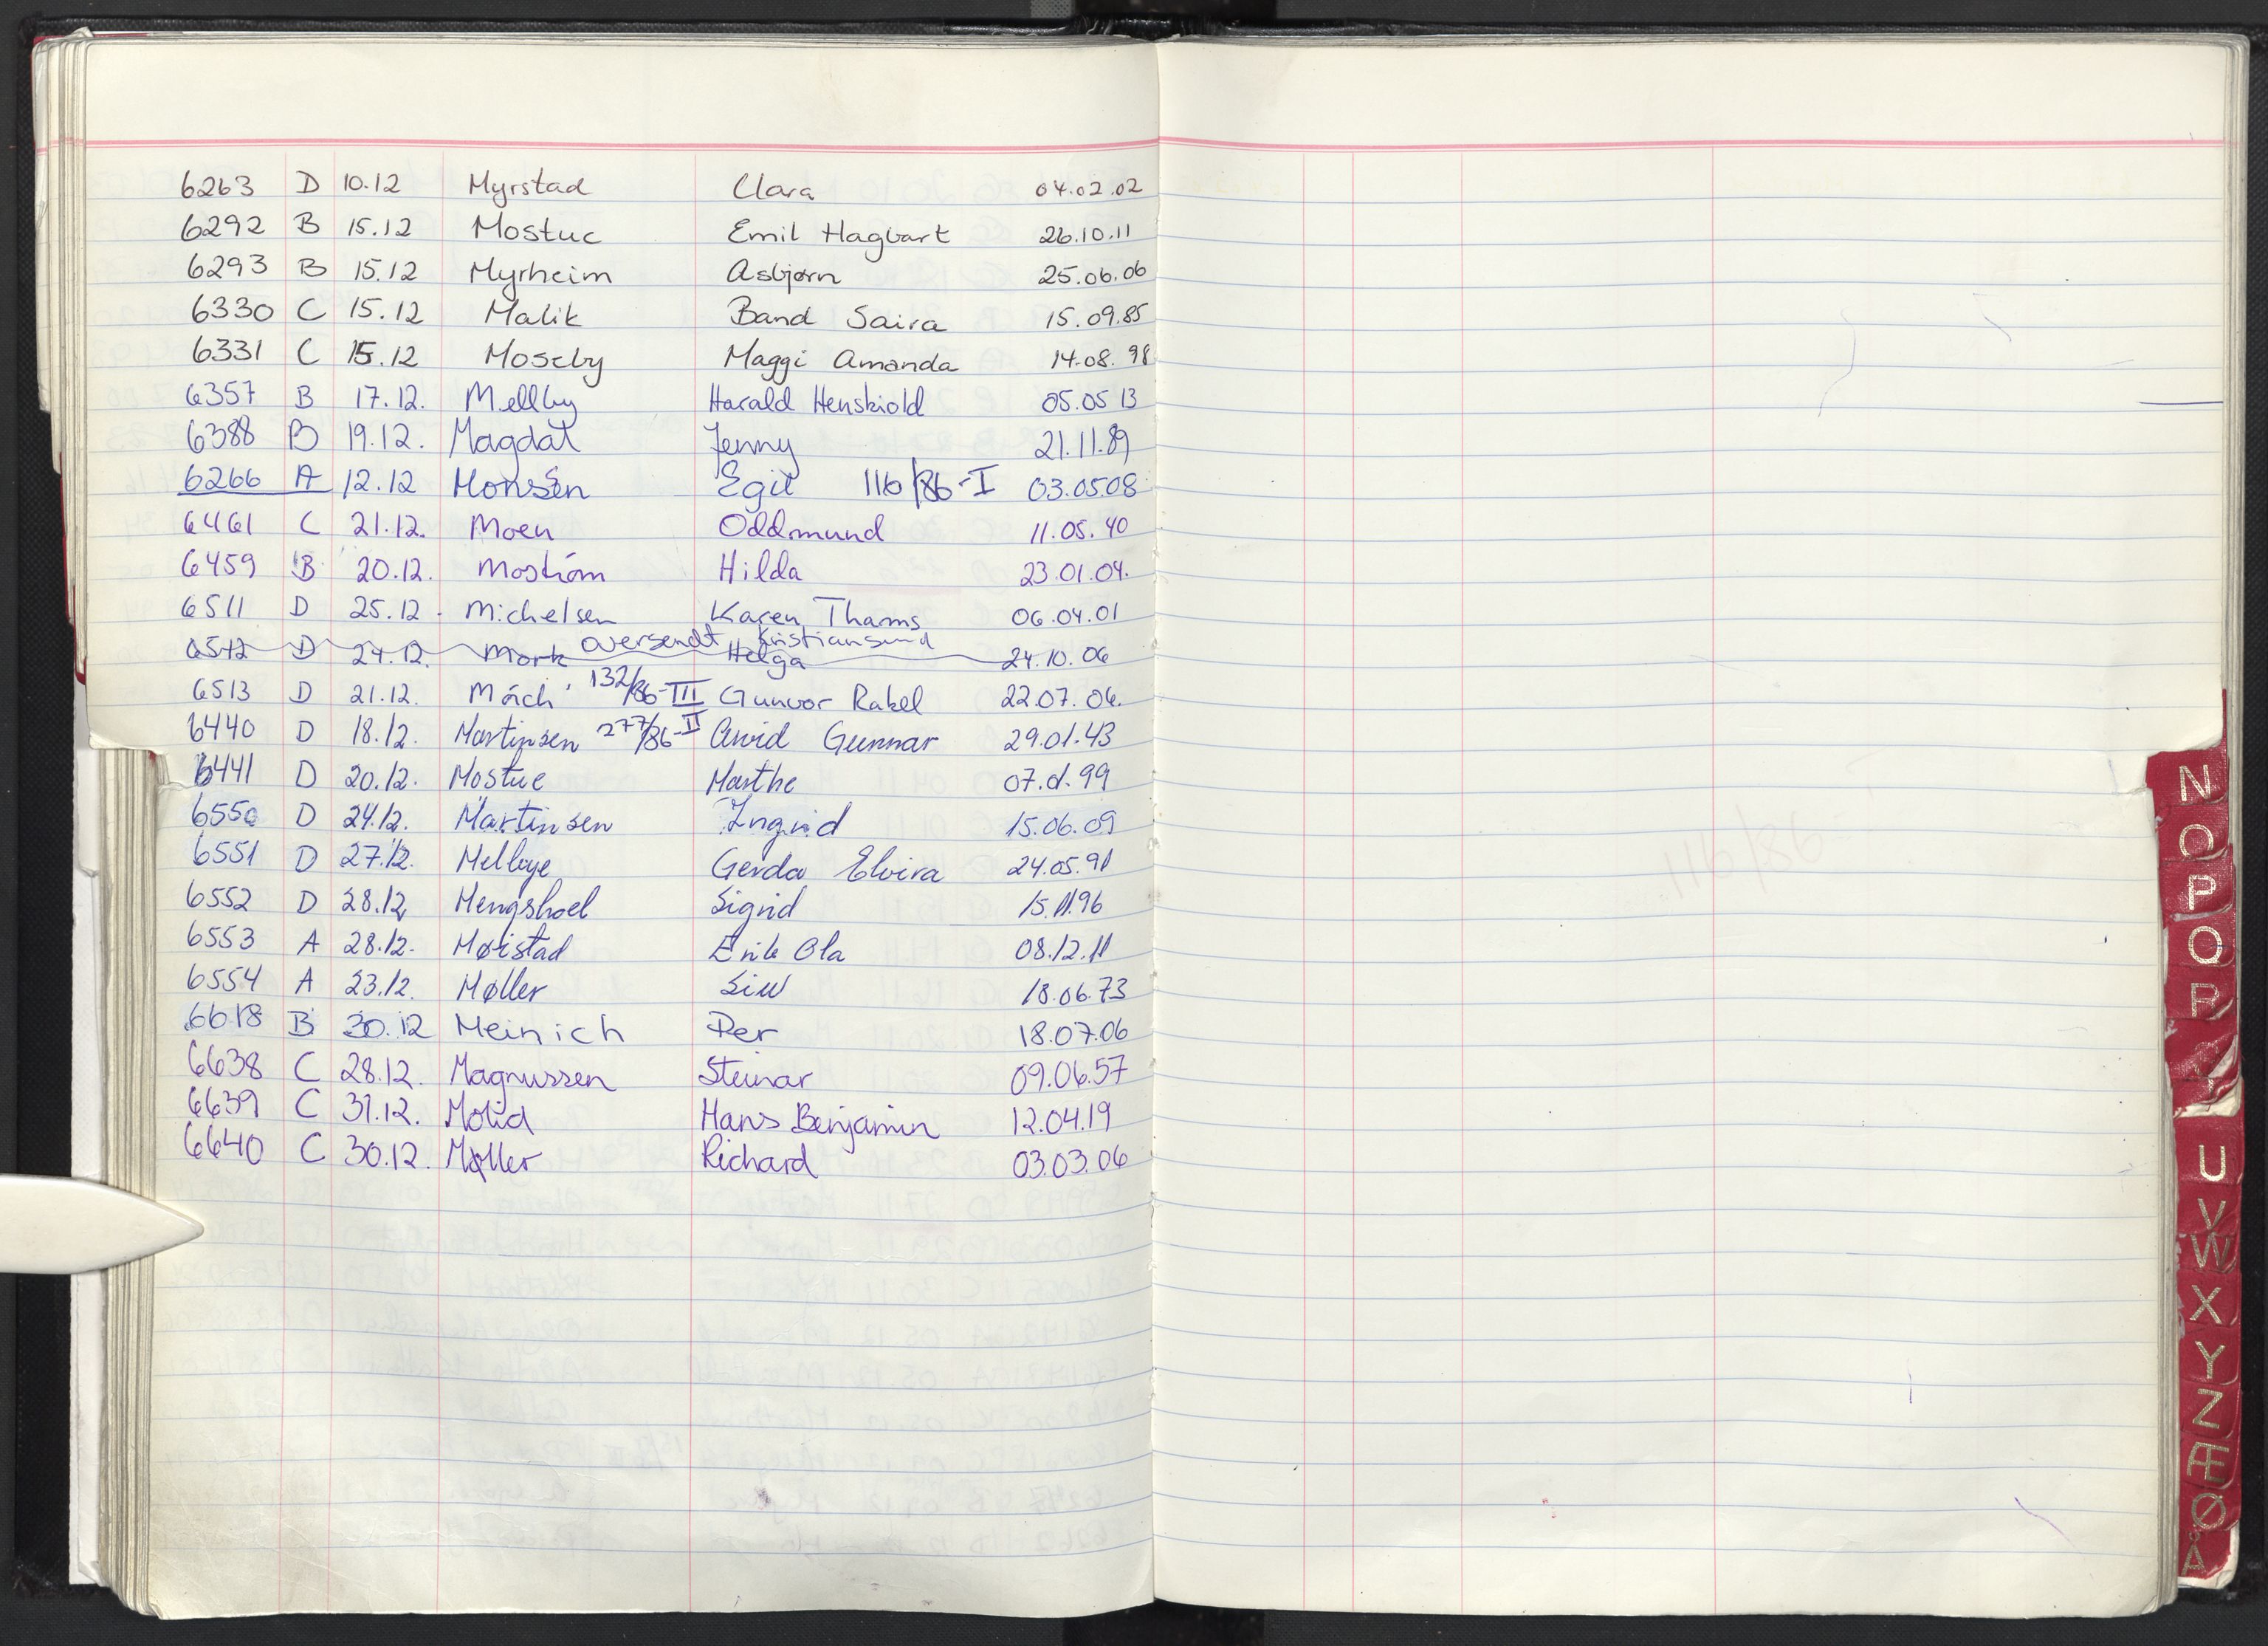 6263 D 10.12 Myrstad Clara 04.02.02
6292 B 15.12 Mostue Emil Hagbart 26.10.11
6293 B 15.12 Myrheim Asbjørn 25.06.06
6330 C 15.12 Malik Band Saira 15.09.85
6331 C 15.12 Moseby Maggi Amanda 14.08.98
6357 B 17.12. Mellby Harald Henskiold 05.05 13
6388 B 19.12. Magdal Jenny 21.11.89
6266 A 12.12 Monsen Egil 116/86-I 03.05.08
6461 C 21.12. Moen Oddmund 11.05.40
6459 B 20.12. Moström Hilda 23.01.04.
6511 D 25.12. Michelsen Karen Thams 06.04.01
oversendt Kristiansund
6512 D 24.12. Mork Helga 24.10.06
6513 D 21.12. 132/86-III Gunvor Rakel 22.07.06.
6440 D 18.12. Martinsen 277/86-II Arvid Gunnar 29.01.43
6441 D 20.12. Mostue Marthe 07.01.99
6550 D 24.12. Martinsen Ingrid 15.06.09
6551 D 27.12. Melbye Gerda Elvira 24.05.91
6552 D 28.12. Mengshoel Sigrid 15.11.96
6553 A 28.12. Møistad Erik Ola 08.12.11
6554 A 23.12. Møller Siw 18.06.73
6618 B 30.12 Meinich Per 18.07.06
6638 C 28.12. Magnussen Steinar 09.06.57
6639 C 31.12. Molid Hans Benjamin 12.04.19
6640 C 30.12. Møller Richard 03.03.06
N
O
P
Q
R
U
V
W
X
Y
Z
Æ
Ø
Å